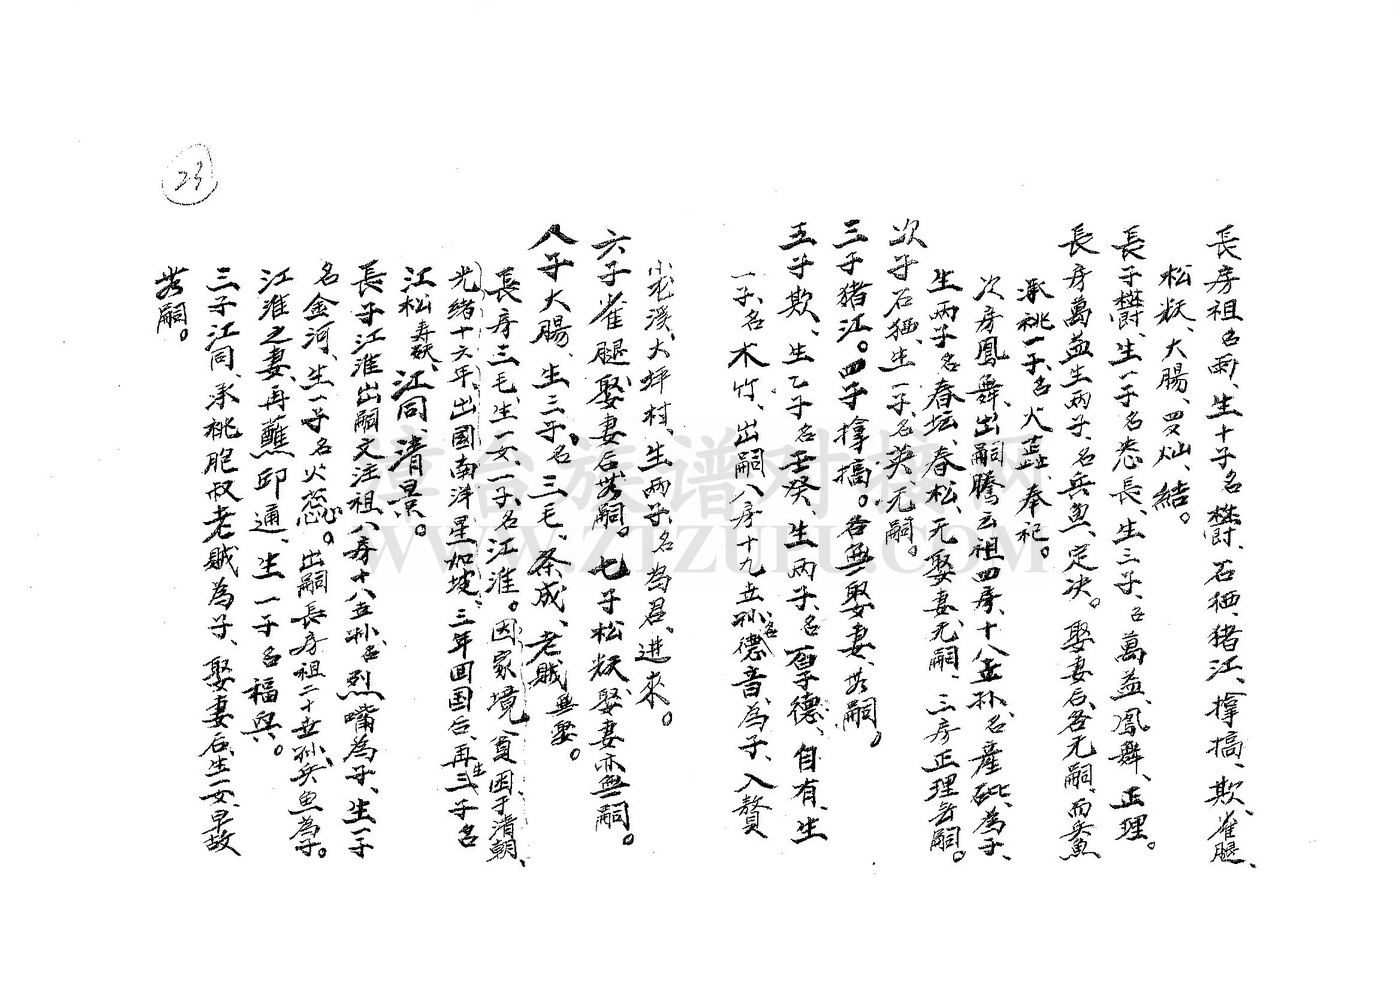 長房祖名両、生十子名欝、石栖、猪江、撑搞、欺、雀腿、
松粄、大腸、四灿、結。
長子欝、生一子名悉長、生三子、名萬益、鳳舞、正理。
長房萬益生両子、名兵魚、定决。娶妻后各无嗣、而兵魚
承祧一子、名火蕋、奉祀。
次房鳳舞、出嗣騰云祖四房、十八世孙、名產砒、為子、
生両子名春坛、春松、无娶妻、无嗣、三房正理無嗣。
次子石栖、生一子、名英、无嗣。
三子猪江。四子撑搞。各無娶妻、無嗣。
五子欺、生乙子名壬癸、生両子、名厚德、自有、生
一子、名木竹、出嗣八房十九世孙名德音、為子、入贅
小老溪、大坪村、生両子、名為君、進來。
六子雀腿娶妻后無嗣。七子松粄、娶妻亦無嗣。
八子大腸、生三子、名三毛、条成、老贼無娶。
長房三毛、生一女、一子、名江淮。因家境貧困、于清朝、
光緒十六年、出國南洋星加坡、三年回国后、再生三子名
江松壽粄、江同、清景。
長子江淮出嗣文注祖、八房十八世孙、名烈嘴為子、生一子
名金河、生一子名火蕋。出嗣長房祖二十世孙、兵魚為子。
江淮之妻、再蘸邱通、生一子名福興。
三子江同、承祧胞叔老贼為子、娶妻后、生一女、早故
無嗣。
23
WWW.ZIZUFU.COM